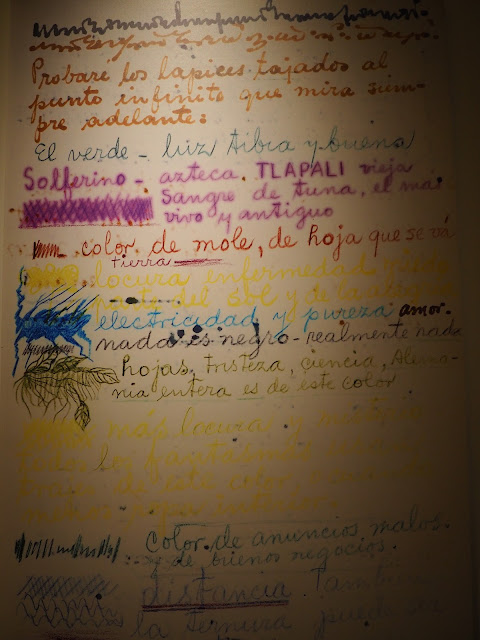 Probaré los lapices tajados al
punto infinito que mira siem-
pre adelante:
El verde – luz tibia y buena
Solferino – azteca. TLAPALI vieja
Sangre de tuna, el más
vivo y antiguo
color de mole, de hoja que se vá
tierra
locura enfermedad y miedo
parte del sol y de la alegria
electricidad y pureza amor.
nada es negro – realmente nada
hojas, tristeza, ciencia, Alema-
nia entera es de este color
más locura y misterio
todos los fantasmas usan
trajes de este color,
menos ropa interior.
color de anuncios malos
y de buenos negocios.
distancia También
la ternura puede ser